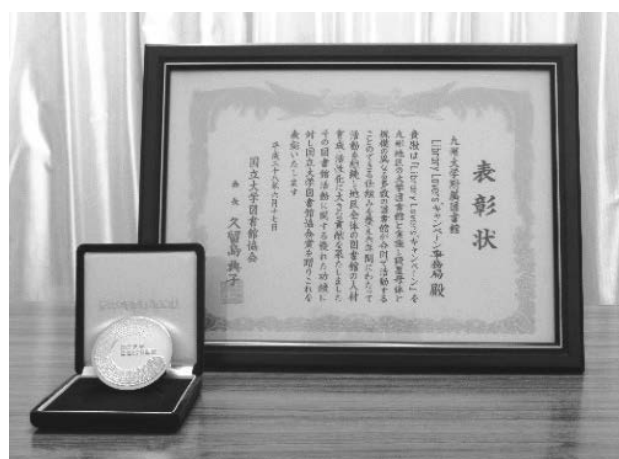 表彰状
九州大学附属図書館
Library Lovers'キャンペーン事務局 殿
貴殿は「Library Lovers'キャンペーン」を
九州地区の大学図書館と実施し設置母体と
規模の異なる多数の図書館が合同で活動する
ことのできる仕組みを整え六年間にわたって
活動を継続し地区全体の図書館の人材
育成、活性化に大きな貢献を果たしました
その図書館活動に関する優れた功績に
対し国立大学図書館協会賞を贈りこれを
表彰いたします
平成二十八年六月十七日
国立大学図書館協会
会長 久留島典子